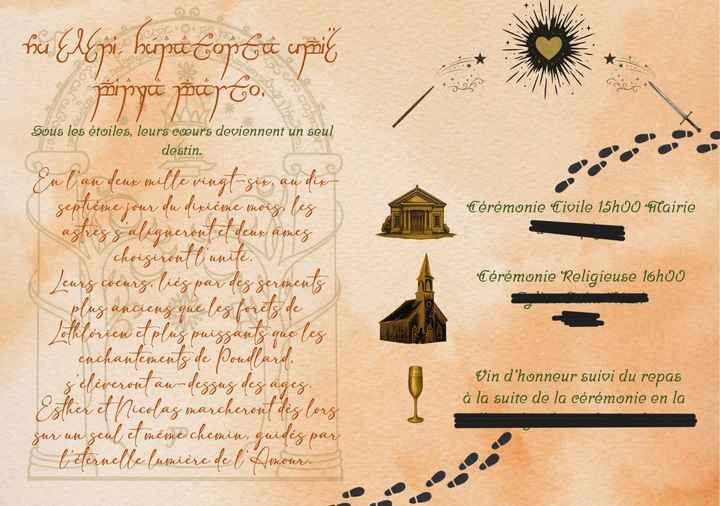 Sous les étoiles, leurs cœurs deviennent un seul
destin.
En l'an deux mille vingt-six, au dix-
septième jour du dixième mois, les
astres s'aligneront et deux âmes
choisiront l'unité.
Leurs coeurs, liés par des serments
plus anciens que les forêts de
Lothlórien et plus puissants que les
enchantements de Poudlard,
s'élèveront au-dessus des âges.
Esther et Nicolas marcheront dès lors
sur un seul et même chemin, guidés par
l'éternelle lumière de l'Amour.
Cérémonie Civile 15h00 Mairie
Cérémonie Religieuse 16h00
Vin d'honneur suivi du repas
à la suite de la cérémonie en la